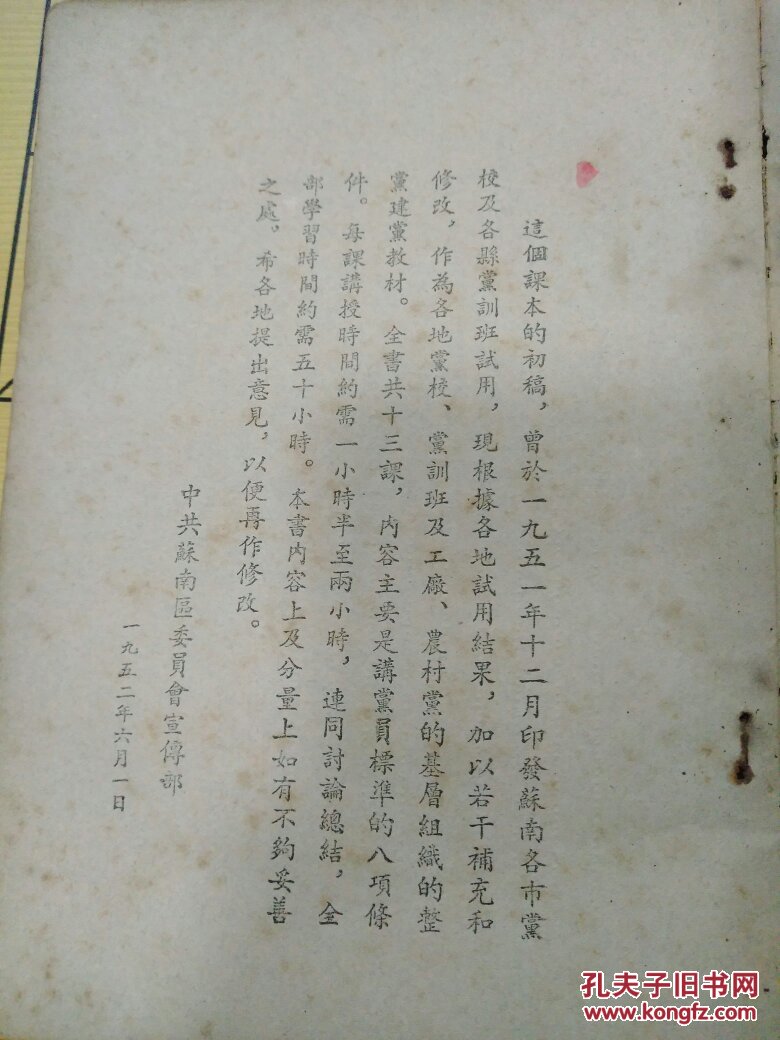 這個課本的初稿，曾於一九五一年十二月印發蘇南各市黨
校及各縣黨訓班試用，現根據各地試用結果，加以若干補充和
修改，作為各地黨校、黨訓班及工廠、農村黨的基層組織的整
黨建黨教材。全書共十三課，內容主要是講黨員標準的八項條
件。每課講授時間約需一小時半至兩小時，連同討論總結，全
部學習時間約需五十小時。本書內容上及分量上如有不夠妥善
之處，希各地提出意見，以便再作修改。
中共蘇南區委員會宣傳部
一九五二年六月一日
孔夫子旧书网
www.kongfz.com